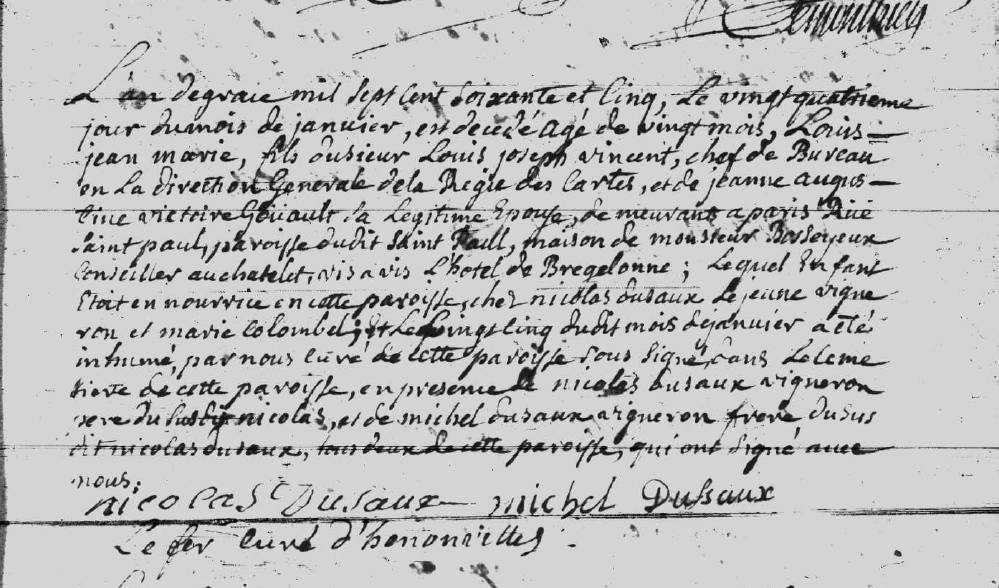 L'an de grace mil sept cent soixante et cinq, Le vingt quatrieme
jour du mois de janvier, est decedé agé de vingt mois, Louis
jean marie, fils du sieur Louis joseph vincent, chef de Bureau
en La direction Generale de la Regie des Cartes, et de jeanne augus-
tine victoire Goüault sa Legitime Epouse, demeurans a paris Rüe
saint paul, paroisse dudit saint Paul, maison de monsieur
Conseiller au chatelet, vis a vis L'hotel de Bregelonne ; Lequel Enfant
Etat en nourrice en cette paroisse, chez nicolas dusaux Le jeune vigne
ron et marie Colombel ; Et Le vingt Cinq dudit mois de janvier a été
inhumé, par nous Curé de cette paroisse sous signé, dans Le Cime
tiere de cette paroisse, en presence de nicolas dusaux vigneron
pere du susdit nicolas, et de michel dusaux vigneron frere du sus
dit nicolas dusaux, tous deux de cette paroisse, qui ont signé avec
nous.
nicolas Dusaux michel Dussaux
Curé d'hononvilles